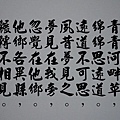 青青河畔草，
綿綿思遠道。
遠道不可思，
夙昔夢見之。
夢見在我旁，
忽覺在他鄉。
他鄉各異縣，
輾轉不相見。